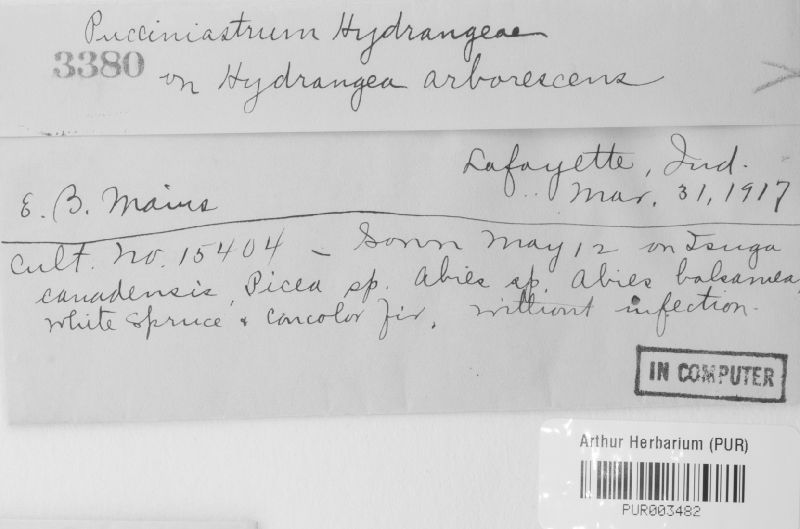 Pucciniastrum Hydrangeae
3380
on Hydrangea arborescens
Lafayette, Ind.
Mar. 31, 1917
E. B. Mains
Cult. No. 15404 - Sown May 12 on Tsuga
canadensis, Picea sp. Abies sp. Abies balsamea,
white spruce & concolor fir, without infection.
IN COMPUTER
Arthur Herbarium (PUR)
PUR003482